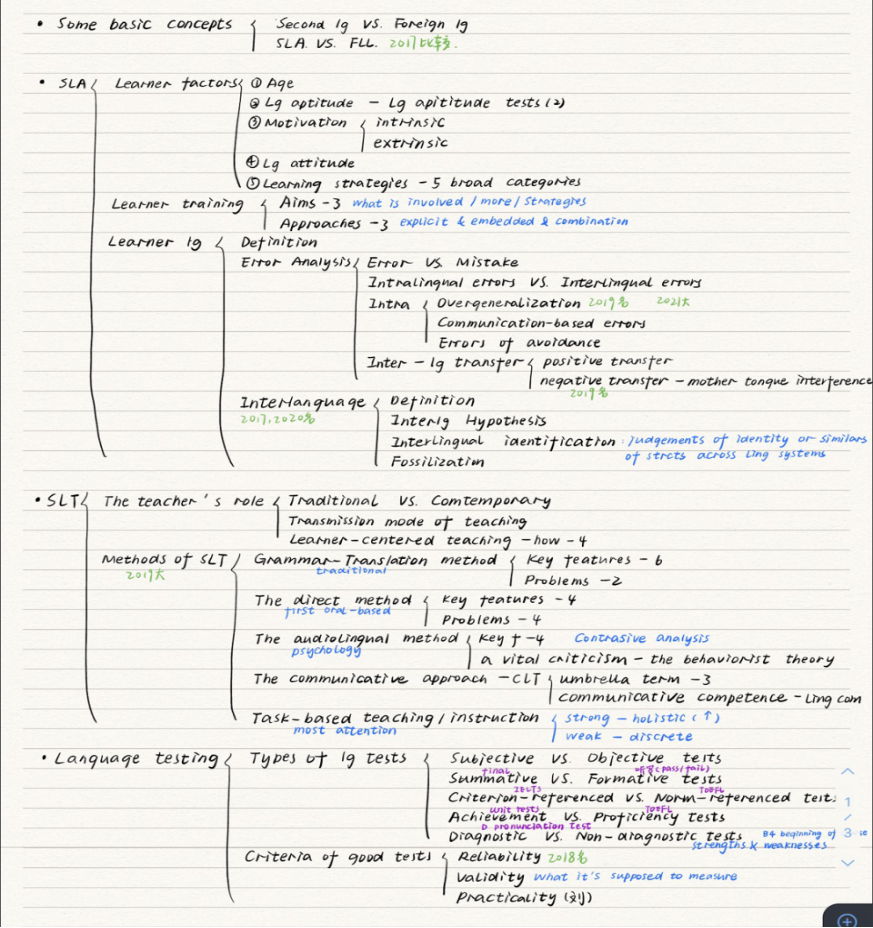 • Some basic concepts { Second lg VS. Foreign lg
SLA. VS. FLL. 2017比较.
• SLA { Learner factors { ① Age
② Lg aptitude - Lg apititude tests (2)
③ Motivation { intrinsic
extrinsic
④ Lg attitude
⑤ Learning strategies - 5 broad categories
Learner training { Aims -3 what is involved / more / strategies
Approaches -3 explicit & embedded & combination
Learner lg { Definition
Error Analysis { Error VS. Mistake
Intralingual errors VS. Interlingual errors
Intra { Overgeneralization 2019名 2021大
Communication-based errors
Errors of avoidance
Inter - lg transfer { positive transfer
negative transfer - mother tongue interference
2019名
Interlanguage { Definition
2017, 2020名 Interlg Hypothesis
Interlingual identification: judgements of identity or similars
of strcts across Ling systems
Fossilization
• SLT { The teacher's role { Traditional VS. Comtemporary
Transmission mode of teaching
Learner-centered teaching - how - 4
Methods of SLT { Grammar-Translation method { Key features - 6
2019大 traditional Problems - 2
The direct method { Key features - 4
first oral-based Problems - 4
The audiolingual method { Key f - 4 Contrasive analysis
psychology a vital criticism - the behaviorist theory
The communicative approach - CLT { umbrella term - 3
communicative competence - Ling com
Task-based teaching / instruction { strong - holistic (↑)
most attention weak - discrete
• Language testing { Types of lg tests { Subjective VS. Objective tests
final (pass/fail)
Summative VS. Formative tests
IELTS TOEFL
Criterion-referenced VS. Norm-referenced tests 1
unit tests TOEFL
Achievement VS. Proficiency tests /
D pronunciation test
Diagnostic VS. Non-diagnostic tests B4 beginning of 3 se
strengths & weaknesses
Criteria of good tests { Reliability 2018名
Validity what it's supposed to measure
Practicality (刘)